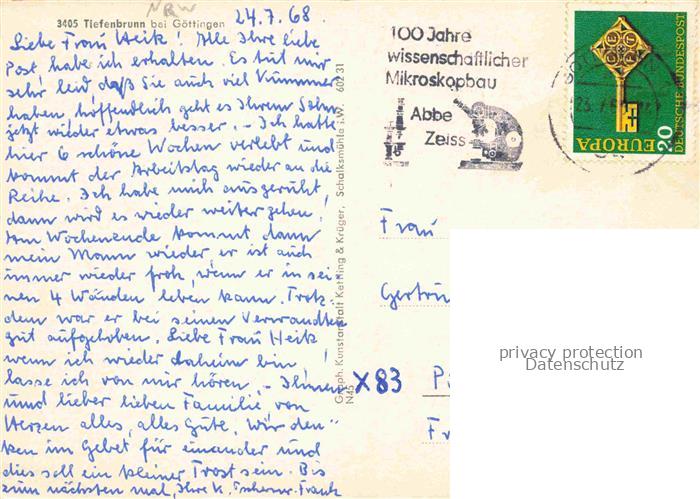 NRW
3405 Tiefenbrunn bei Göttingen
24.7.68.
Liebe Frau Heik! Alle Ihre liebe
Post habe ich erhalten. Es tut mir
sehr leid, daß Sie auch viel Kummer
haben, hoffendlich geht es Ihrem Sohn
jetzt wieder etwas besser. - Ich hatte
hier 6 schöne Wochen verlebt und
kommt der Arbeitstag wieder an die
Reihe. Ich habe mich ausgeruht,
dann wird es wieder weiter gehen.
Am Wochenende kommt dann
mein Mann wieder, er ist auch
immer wieder froh, wenn er in sei-
nen 4 Wänden leben kann. Trotz-
dem war er bei seinen Verwandten
gut aufgehoben. Liebe Frau Heik
wenn ich wieder daheim bin
lasse ich von mir hören. - Ihnen
und lieber lieben Familie von
Herzen alles, alles Gute. Wir den-
ken im Gebet für einander und
dies soll ein kleiner Trost sein. Bis
zum nächsten mal, Ihre K.
Graph. Kunstanstalt Kettling & Krüger, Schalksmühle i.W. 602 31
N45
X83
100 Jahre
wissenschaftlicher
Mikroskopbau
Abbe
Zeiss
EUROPA
20
DEUTSCHE BUNDESPOST
Frau
Gertru
P
Fr
privacy protection
Datenschutz